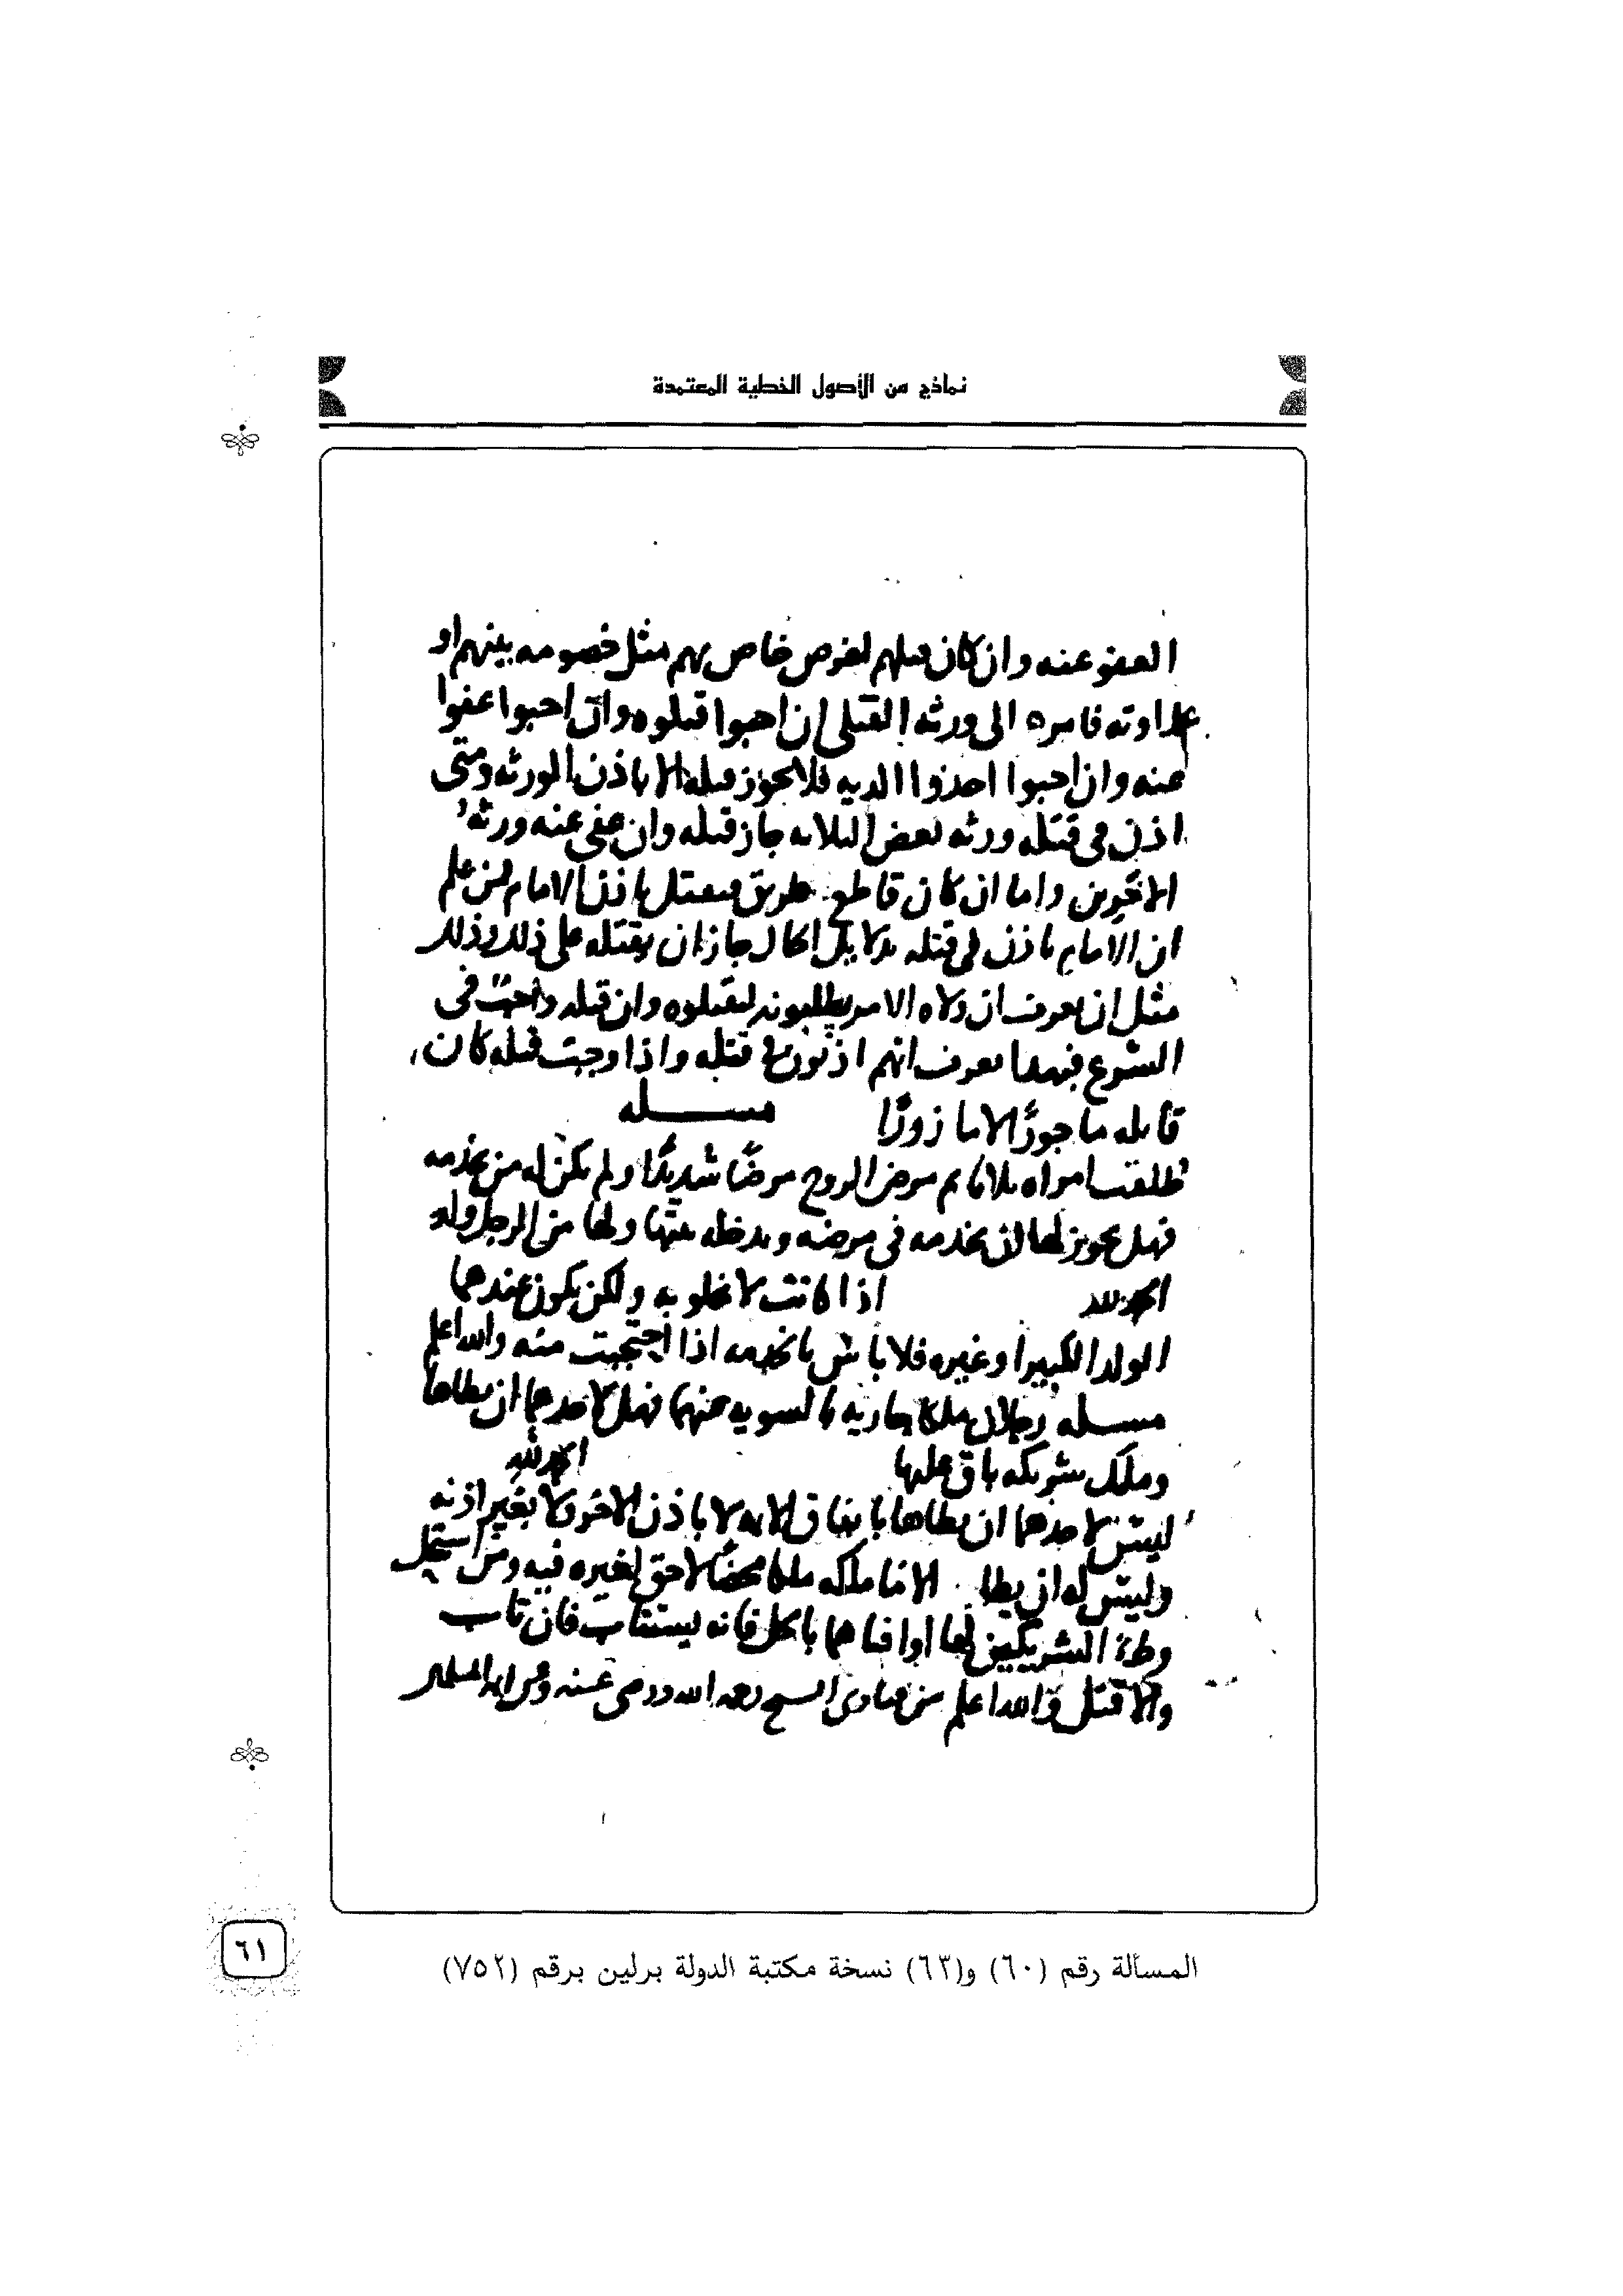 نماذج من الأصول الخطية المعتمدة
العفو عنه وان كان قتلهم لغرض خاص بهم مثل خصومه بينهم او
عداوته فامره الى ورثه القتلى ان احبوا قتلوه وان احبوا عفوا
عنه وان احبوا اخذوا الديه فلا يجوز قتله الا باذن الورثه ومتى
اذن في قتله ورثه بعض الثلاثه جاز قتله وان عفى عنه ورثه
الاخرين واما ان كان قاطع طريق فيقتل باذن الامام فمن علم
ان الامام ياذن في قتله بدلايل الحال جاز ان يقتله على ذلك وذلك
مثل ان يعرف ان ولاه الامر يطلبونه ليقتلوه وان قتله واجب في
الشرع فبهذا يعرف انهم اذنون في قتله واذا وجب قتله كان
قاتله ماجورًا لا مازورًا مسله
طلقت امراه ثلاثا ثم مرض الزوج مرضًا شديدًا ولم يكن له من يخدمه
فهل يجوز لها ان تخدمه في مرضه وبدخله بيتها ولها من الرجل ولد
الحمد لله اذا كانت لا تخلو به ولكن يكون عندهما
الولد الكبير او غيره فلا باس بالخدمه اذا احتجبت منه والله اعلم
مسله رجلان ملكا جاريه بالسويه بينهما فهل لاحدهما ان يطاها
وملك شريكه باق عليها الحمد لله
ليس لاحدهما ان يطاها باتفاق الايمه لا باذن الاخر ولا بغير اذنه
وليس له ان يطا الا ما ملكه ملكا محضًا لا حق لغيره فيه ومن استحل
وطئ الشريكين لها او افتاهما بالحل فانه يستتاب فان تاب
والا قتل والله اعلم من فتاوى الشيخ رحمه الله ورضي عنه
المسألة رقم (٦٠) و(٦٣) نسخة مكتبة الدولة برلين برقم (٧٥٢)
٦١